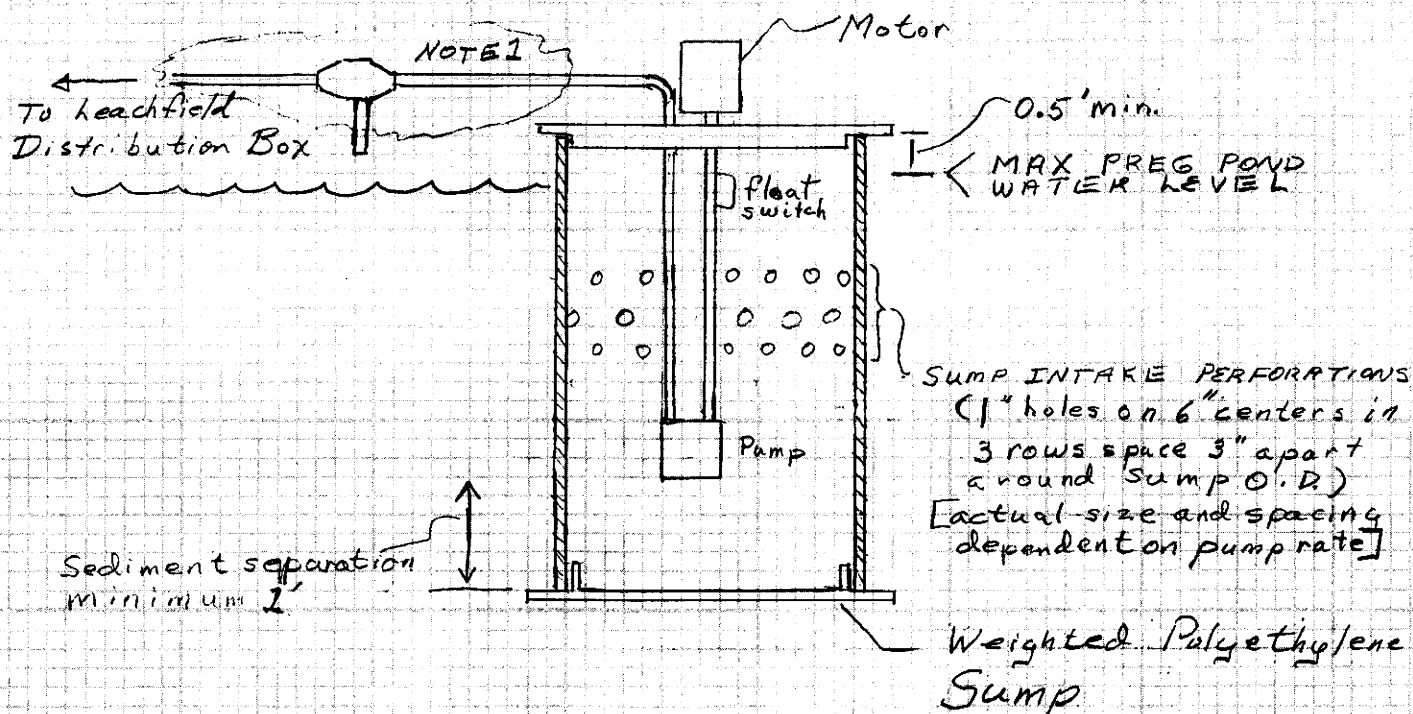 NOTE 1
Motor
To Leachfield
Distribution Box
0.5' min.
MAX PREG POND
WATER LEVEL
float
switch
SUMP INTAKE PERFORATIONS
(1" holes on 6" centers in
3 rows space 3" apart
around Sump O.D.)
[actual size and spacing
dependent on pump rate]
Pump
Sediment separation
minimum 1'
Weighted Polyethylene
Sump